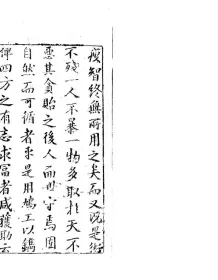 瘦智終無所用之矣而又況是術
不殘一人不暴一物多取於天不
惡其貪貽之後人而世守焉因
自然而可循者乎是用鳩工以鐫
俾四方之有志求富者咸獲助云